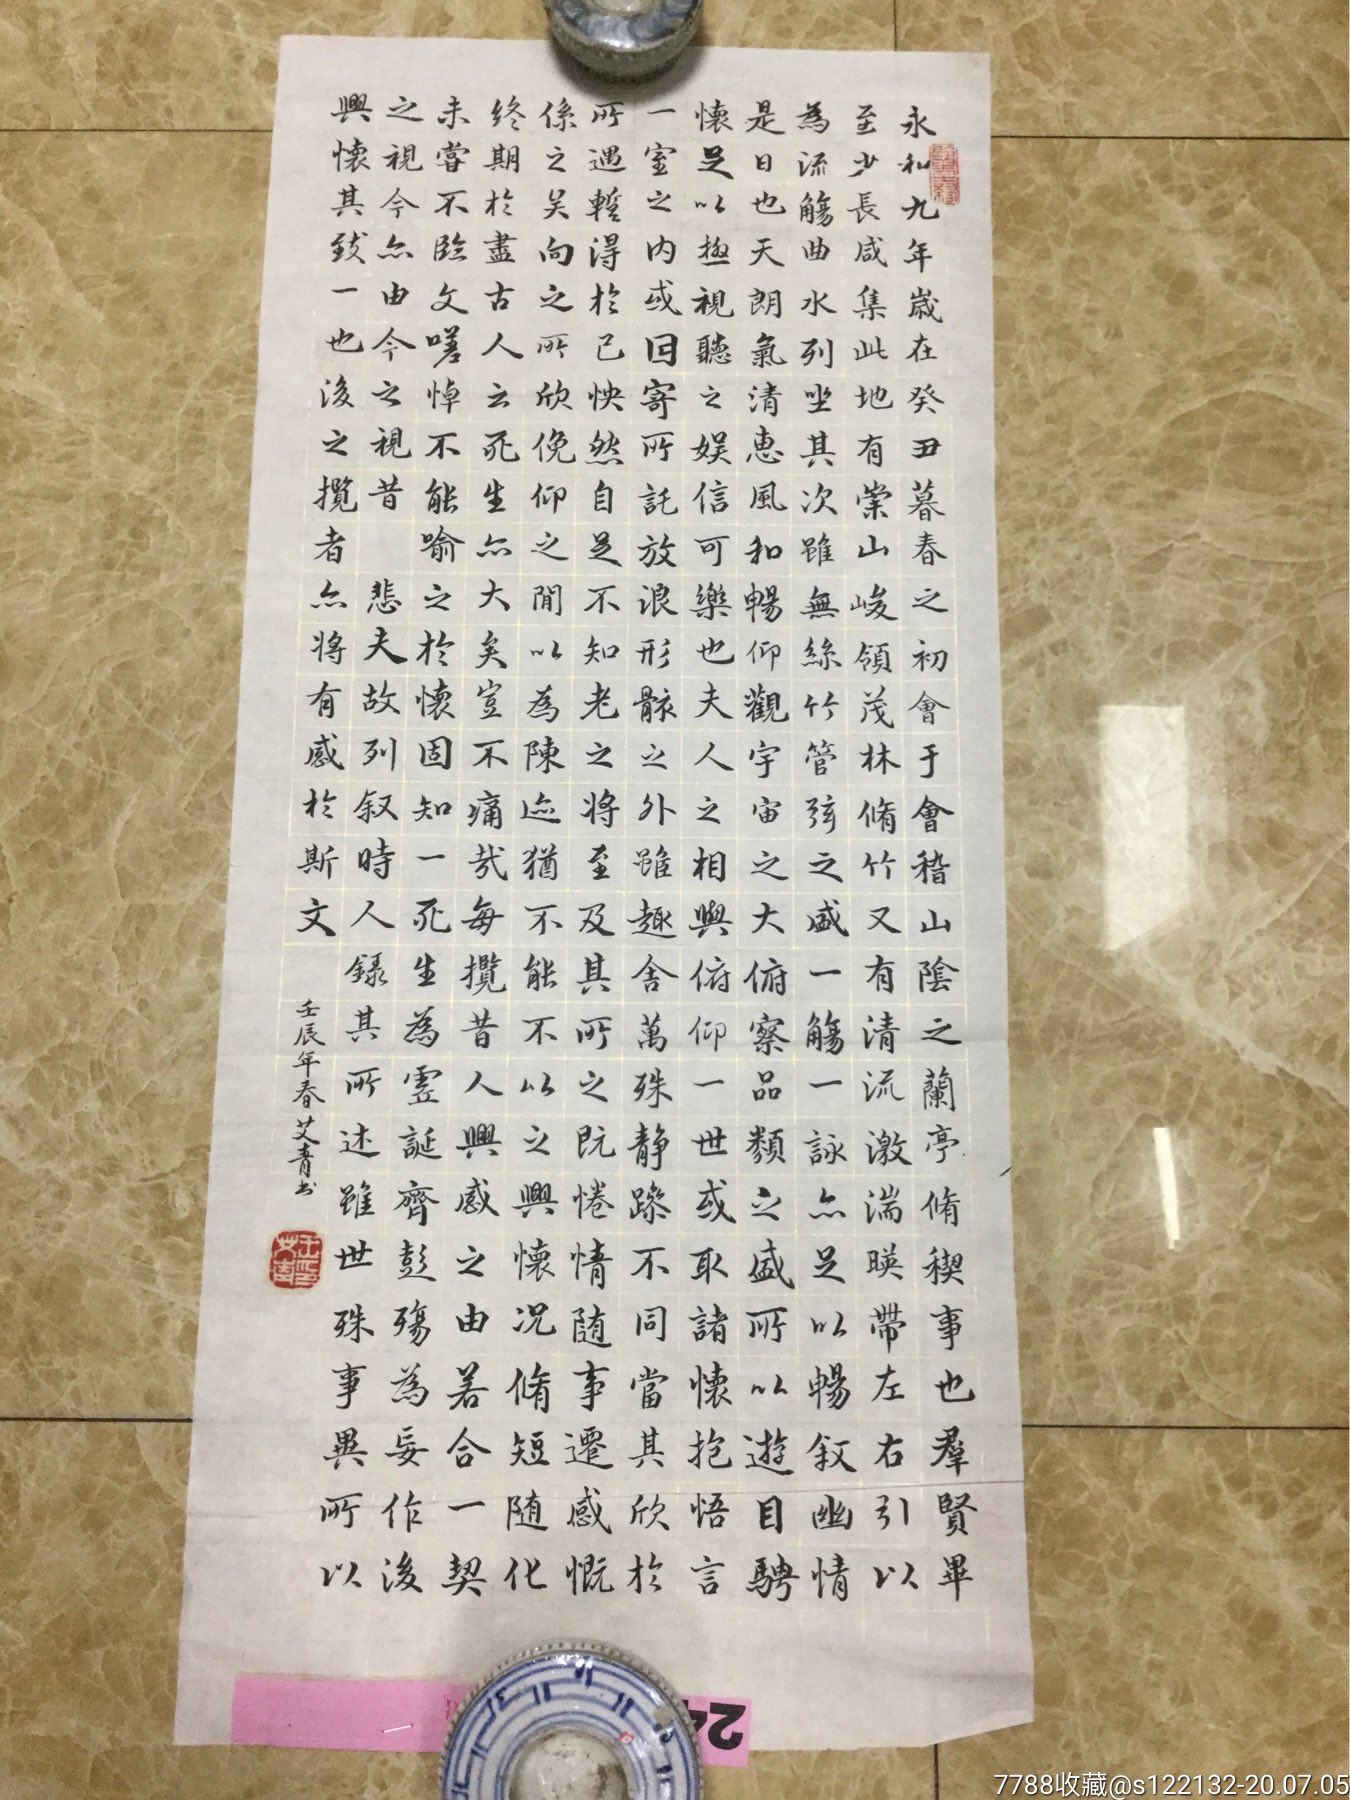 永和九年歲在癸丑暮春之初會于會稽山陰之蘭亭脩稧事也羣賢畢
至少長咸集此地有崇山峻領茂林脩竹又有清流激湍暎帶左右引以
為流觴曲水列坐其次雖無絲竹管弦之盛一觴一詠亦足以暢叙幽情
是日也天朗氣清惠風和暢仰觀宇宙之大俯察品類之盛所以遊目騁
懷足以極視聽之娛信可樂也夫人之相與俯仰一世或取諸懷抱悟言
一室之内或因寄所託放浪形骸之外雖趣舍萬殊静躁不同當其欣於
所遇蹔得於己怏然自足不知老之將至及其所之既惓情随事遷感慨
係之矣向之所欣俛仰之閒以為陳迹猶不能不以之興懷况脩短随化
終期於盡古人云死生亦大矣豈不痛哉每攬昔人興感之由若合一契
未嘗不臨文嗟悼不能喻之於懷固知一死生為虛誕齊彭殤為妄作後
之視今亦由今之視昔 悲夫故列叙時人錄其所述雖世殊事異所以
興懷其致一也後之攬者亦將有感於斯文
壬辰年春艾青书
24
7788收藏@s122132-20.07.05